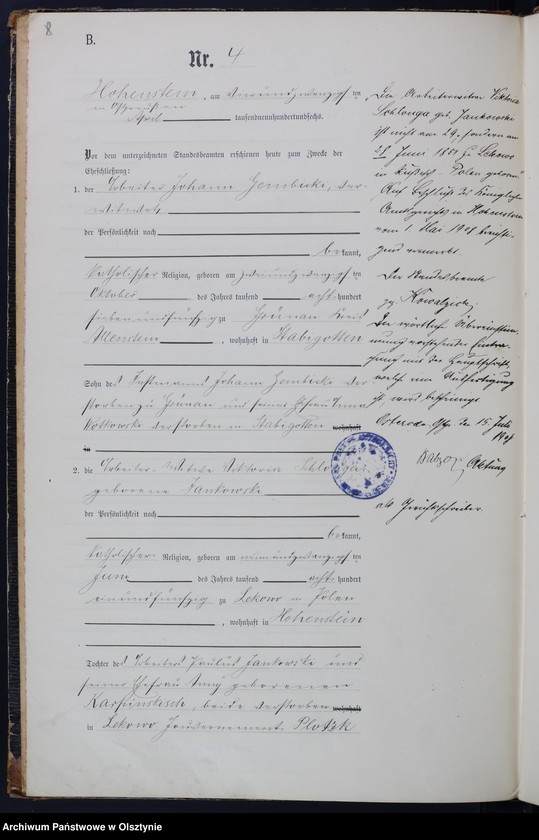 8
B.
Nr. 4
Hohenstein, am vierundzwanzigsten
in Ostpreußen
April tausendneunhundertundsechs.
Vor dem unterzeichneten Standesbeamten erschienen heute zum Zwecke der
Eheschließung:
1. der Arbeiter Johann Gembicki, ver-
witwet,
der Persönlichkeit nach
bekannt,
katholischer Religion, geboren am zweiundzwanzigsten
Oktober des Jahres tausend achthundert
siebenundfünfzig zu Grünau Kreis
Allenstein, wohnhaft in Stabigotten
Sohn des Johann Gembicki ver-
storben zu Grünau und seiner Ehefrau Anna
verstorben in Stabigotten wohnhaft
in
2. die Arbeiter-Witwe Viktoria
geborene Jankowski
der Persönlichkeit nach
bekannt,
katholischer Religion, geboren am neunundzwanzigsten
Juni des Jahres tausend achthundert
einundfünfzig zu Lekowo in Polen
, wohnhaft in Hohenstein
Tochter des Arbeiters Paulus Jankowski und
seiner Ehefrau geborenen
beide verstorben wohnhaft
in Lekowo Gouvernement Plotzk
Die Arbeiterwitwe Viktoria
geb. Jankowski
ist nicht am 29. sondern am
Juni 1851 zu Lekowo
in Russisch-Polen geboren
Auf Beschluß des Königlichen
Amtsgerichts in Hohenstein
vom 1. Mai berichti-
gend vermerkt.
Der Standesbeamte
gez. Kowalzick
Die wörtliche Übereinstim-
mung vorstehender Eintra-
gung mit der Hauptschrift
wird
Osterode Opr. den 15. Juli
als Gerichtsschreiber.
Archiwum Państwowe w Olsztynie